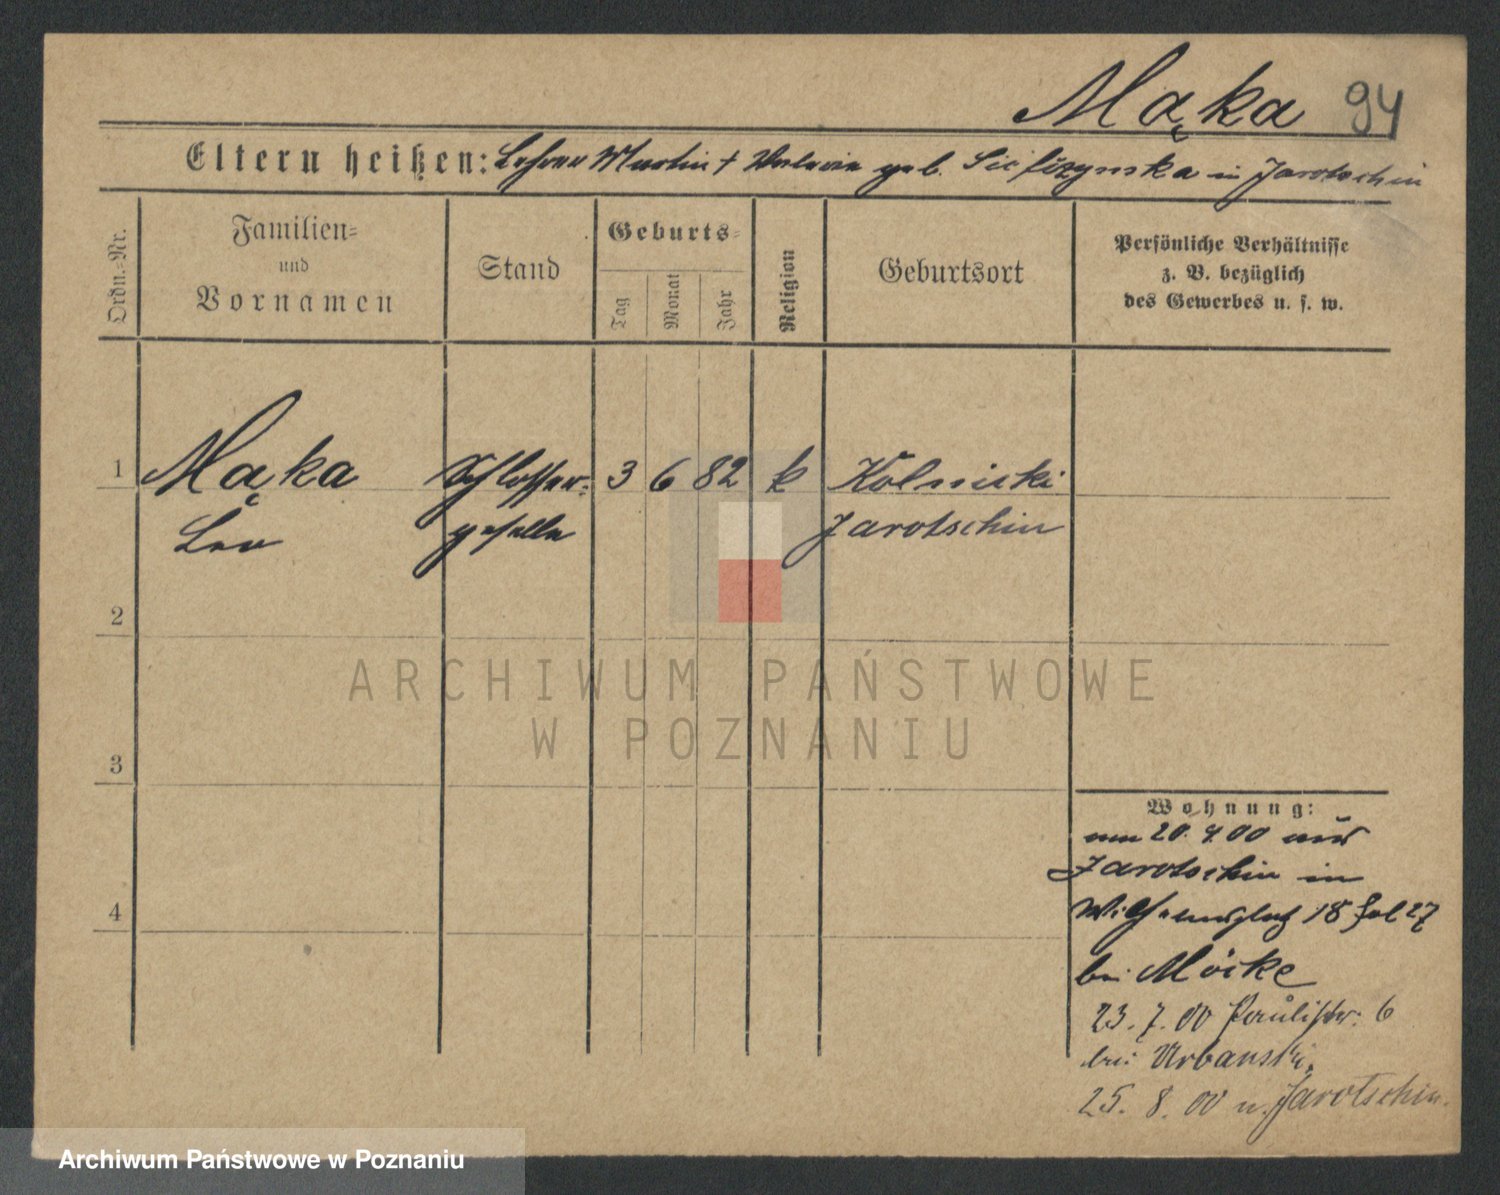 Mąka 94
Eltern heißen: Lehrer Martin + Valerie geb. in Jarotschin
Ordn.-Nr.
Familien-
und
Vornamen
Stand
Geburts-
Tag
Monat
Jahr
Religion
Geburtsort
Persönliche Verhältnisse
z. B. bezüglich
des Gewerbes u. s. w.
1 Mąka Schlosser- 3 6 82 k Kolniski
Leo geselle Jarotschin
2
3
4
Wohnung:
am 20. 4. 00 aus
Jarotschin in
Wilhelmsplatz 18
bei Möcke
23. 7. 00 Paulistr. 6
bei Urbanski.
25. 8. 00 n. Jarotschin.
ARCHIWUM PAŃSTWOWE
W POZNANIU
Archiwum Państwowe w Poznaniu